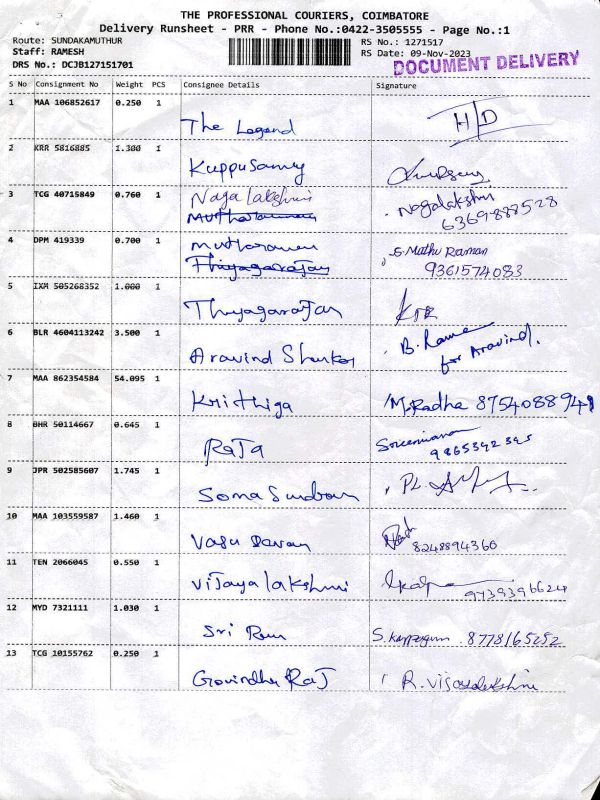 THE PROFESSIONAL COURIERS, COIMBATORE
Delivery Runsheet - PRR - Phone No.:0422-3505555 - Page No.:1
Route: SUNDAKAMUTHUR
RS No.: 1271517
Staff: RAMESH
RS Date: 09-Nov-2023
DRS No.: DCJB127151701
DOCUMENT DELIVERY
S No Consignment No Weight PCS Consignee Details Signature
1 MAA 106852617 0.250 1 The Legend H/D
2 KRR 5816885 1.300 1 Kuppusamy
3 TCG 40715849 0.760 1 Nagalakshmi Nagalakshmi
Mutharaman 6369888528
4 DPM 419339 0.700 1 Mutharaman S. Muthu Raman
Thiyagarajan 9361574083
5 IXM 505268352 1.000 1 Thiyagarajan
6 BLR 4604113242 3.500 1 Aravind Shankar B. Rama
for Aravind.
7 MAA 862354584 54.095 1 Krithiga M.Radha 8754088941
8 BHR 50114667 0.645 1 Raja
9865392395
9 JPR 502585607 1.745 1 Soma Sundram PL
10 MAA 103559587 1.460 1 Vasu Devan
8248894360
11 TEN 2066045 0.550 1 Vijayalakshmi
9739396624
12 MYD 7321111 1.030 1 Sri Ram 8778165252
13 TCG 10155762 0.250 1 Govindha Raj R. Vijayalakshmi